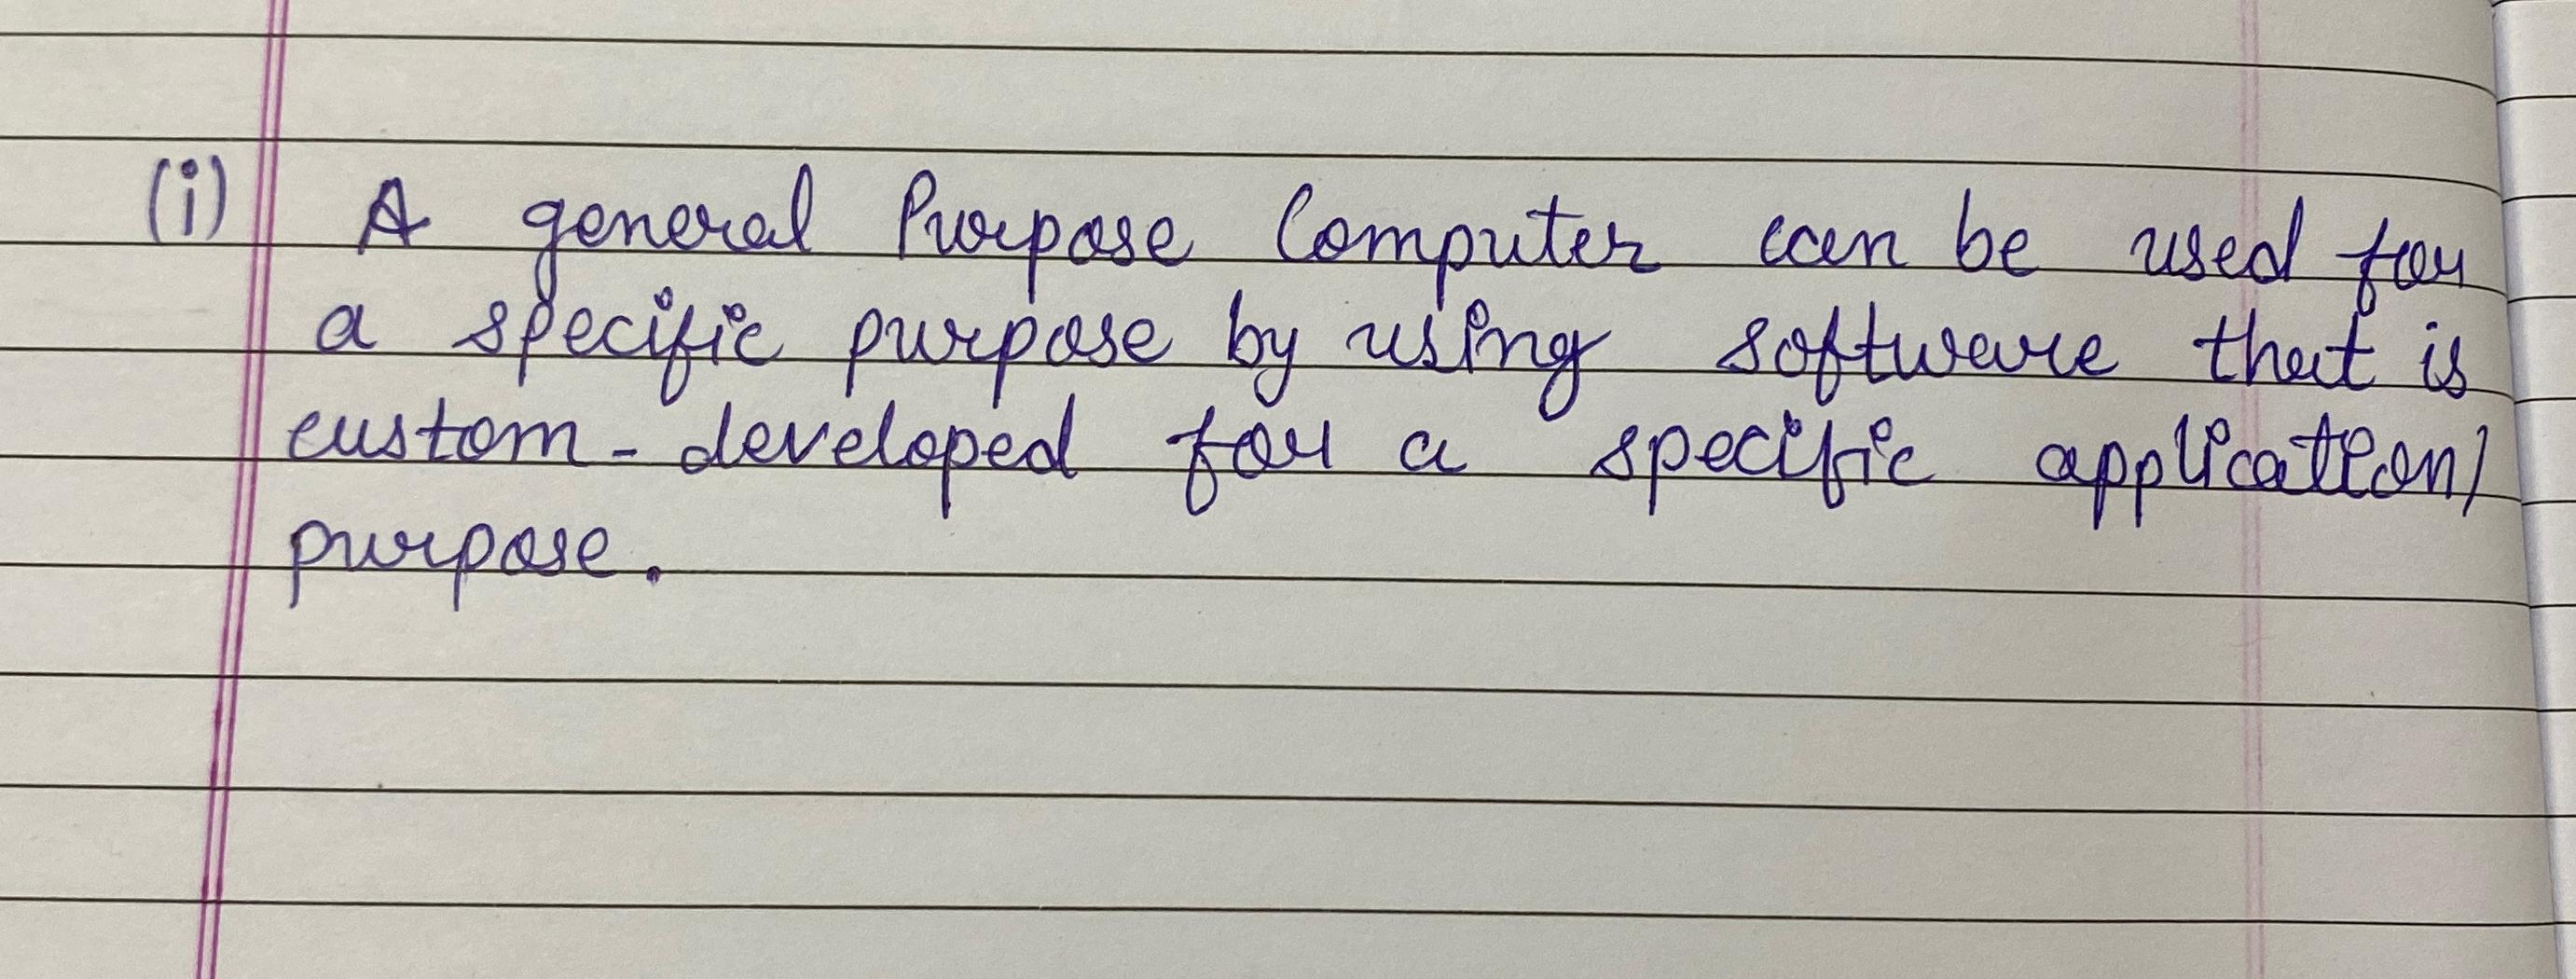 (i) A general Purpose Computer can be used for
a specific purpose by using software that is
custom-developed for a specific application/
purpose.